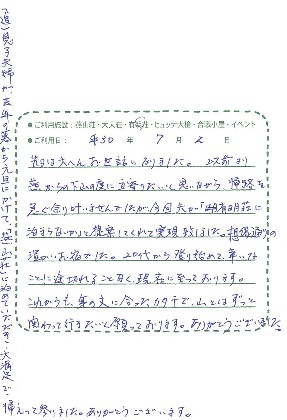 ●ご利用施設：燕山荘・大天荘・有明荘・ヒュッテ大槍・合戦小屋・イベント
●ご利用日：平30年7月2日
先日は大へんお世話になりました。以前より
燕からの下山の度に立寄りたいと思いながら、帰路を
急ぐ余り叶いませんでしたが、今回夫が「明有明荘に
泊まらないか」と提案してくれて実現致しました。想像通りの
温かいお宿でした。20代から登り始めて、幸いな
ことに途切れること無く、現在に至っております。
これからも、年の丈に合ったカタチで、山とはずっと
関わって行きたいと願っております。ありがとうございました
(追)息子夫婦が、去年の暮から元旦にかけて、燕山荘に泊めていただき、大満足で、
帰えって参りました。ありがとうございます。